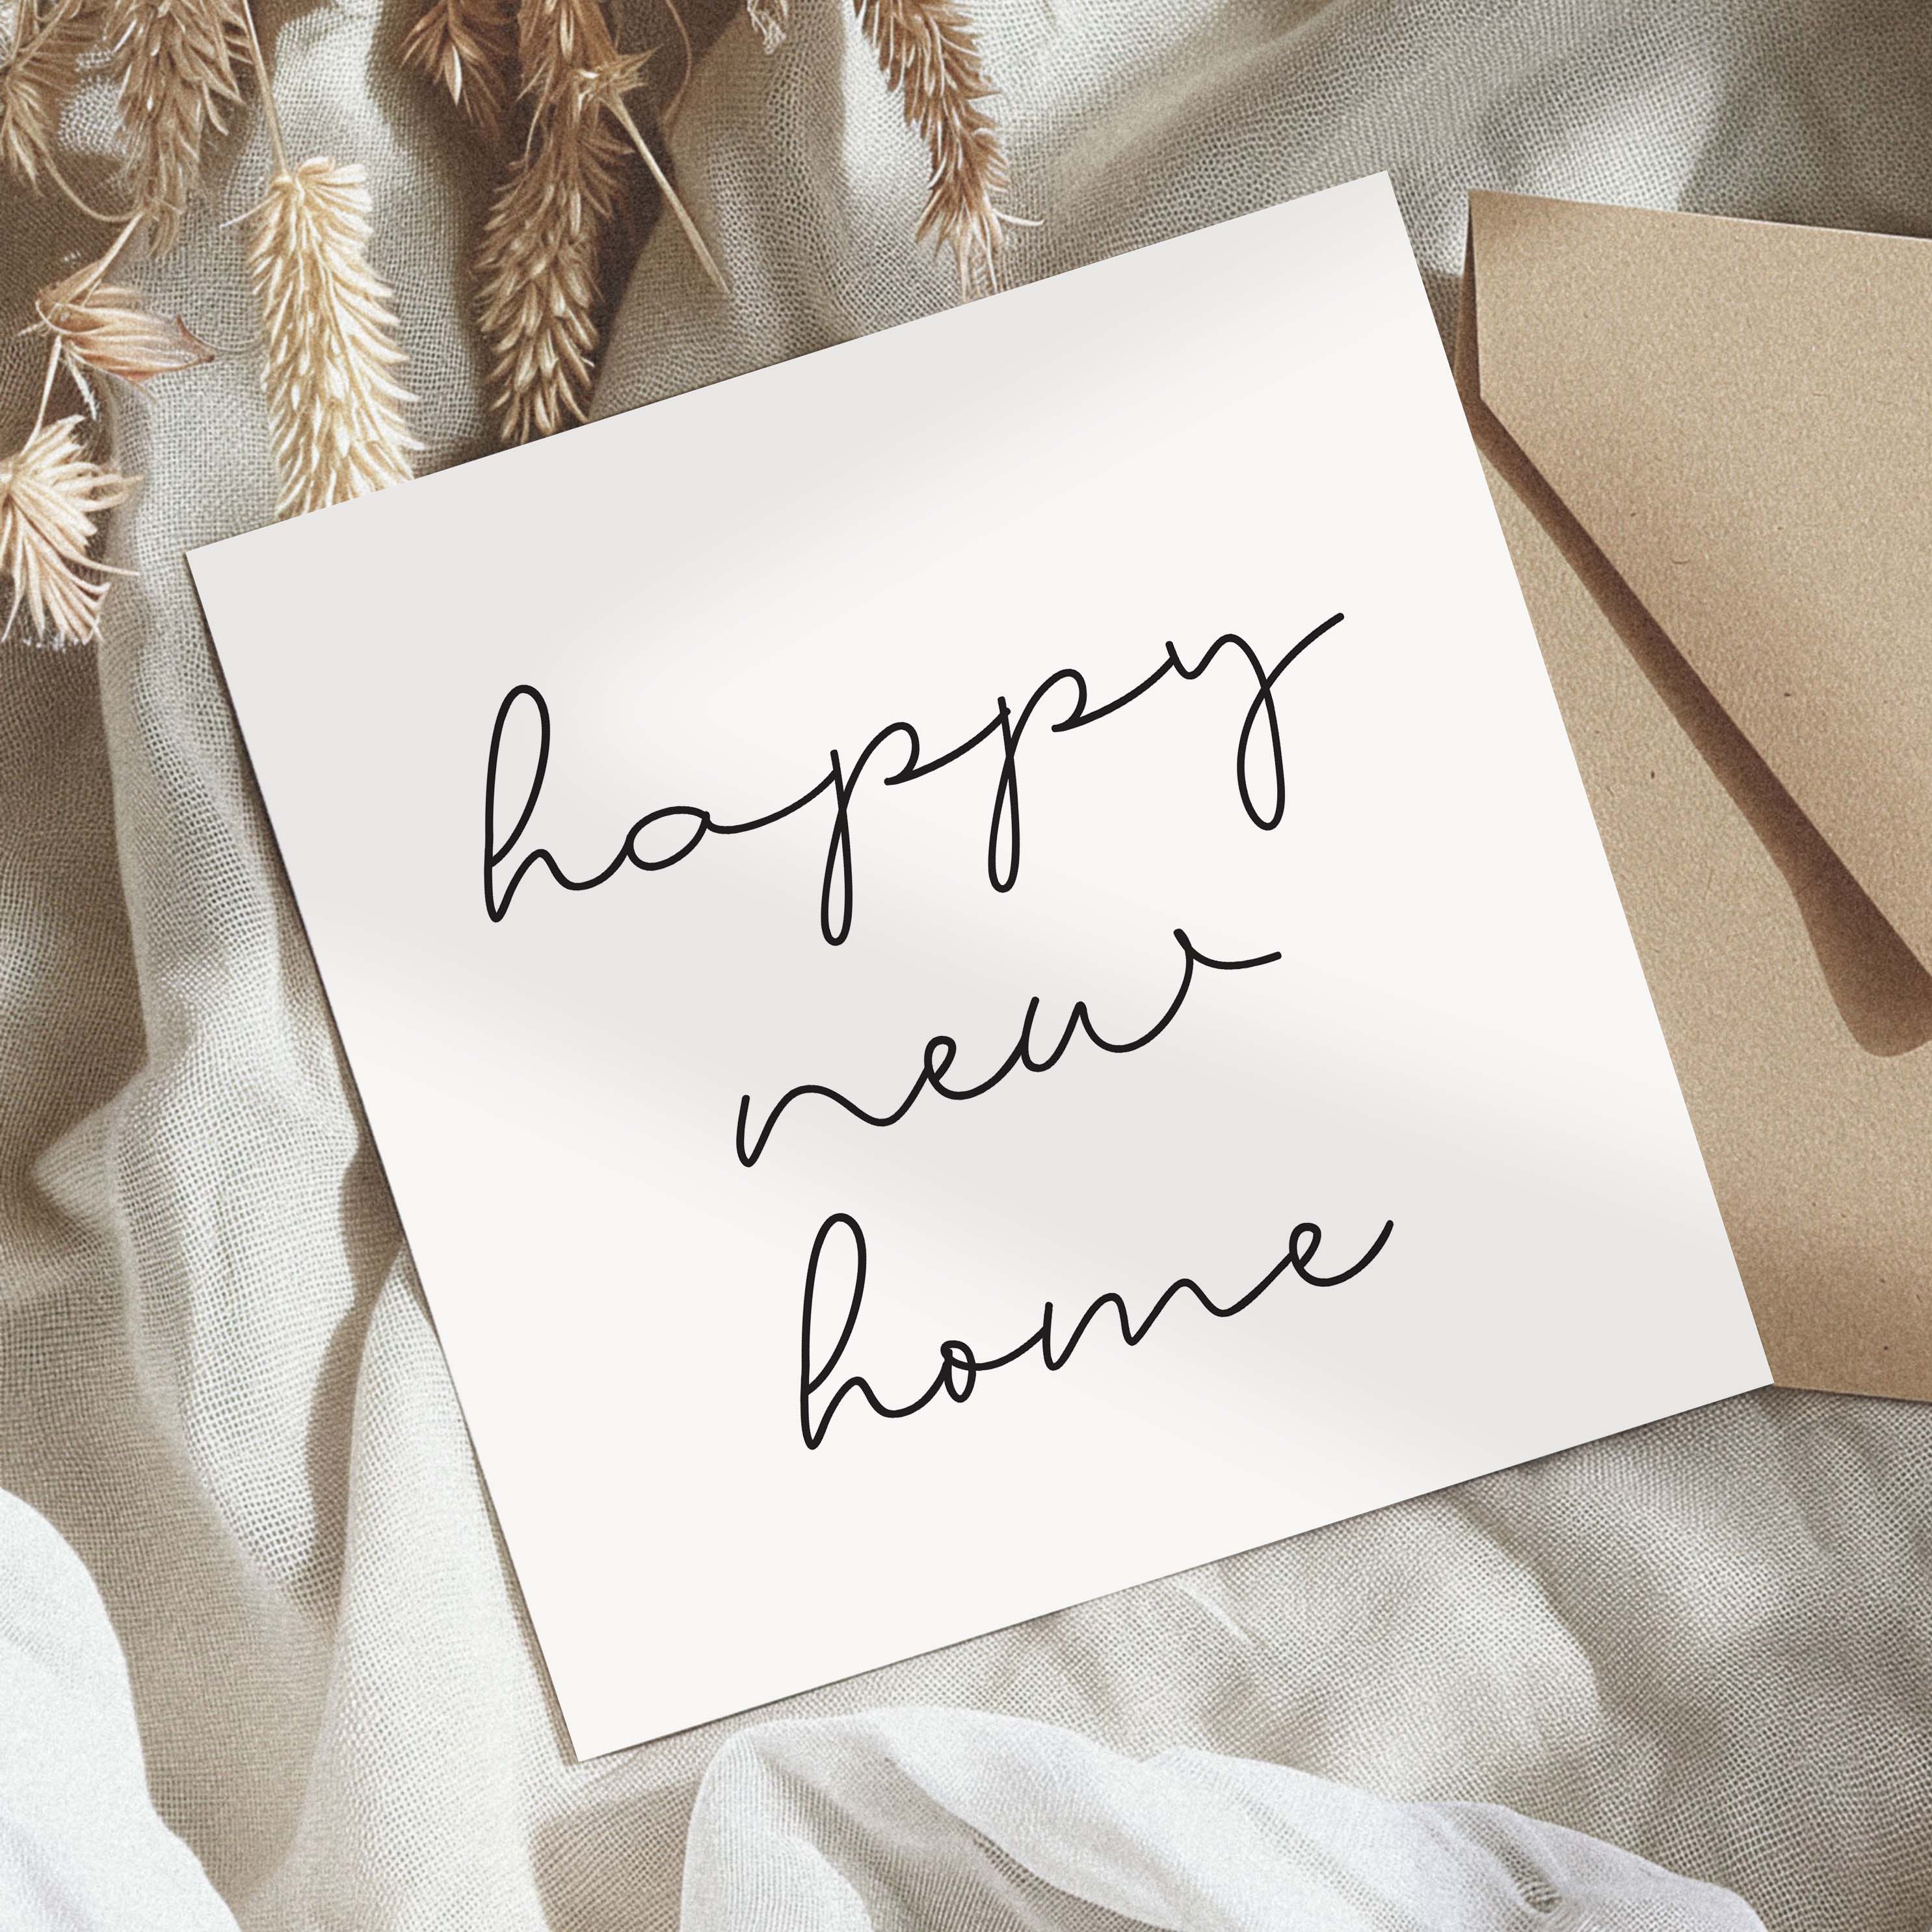 happy
new
home